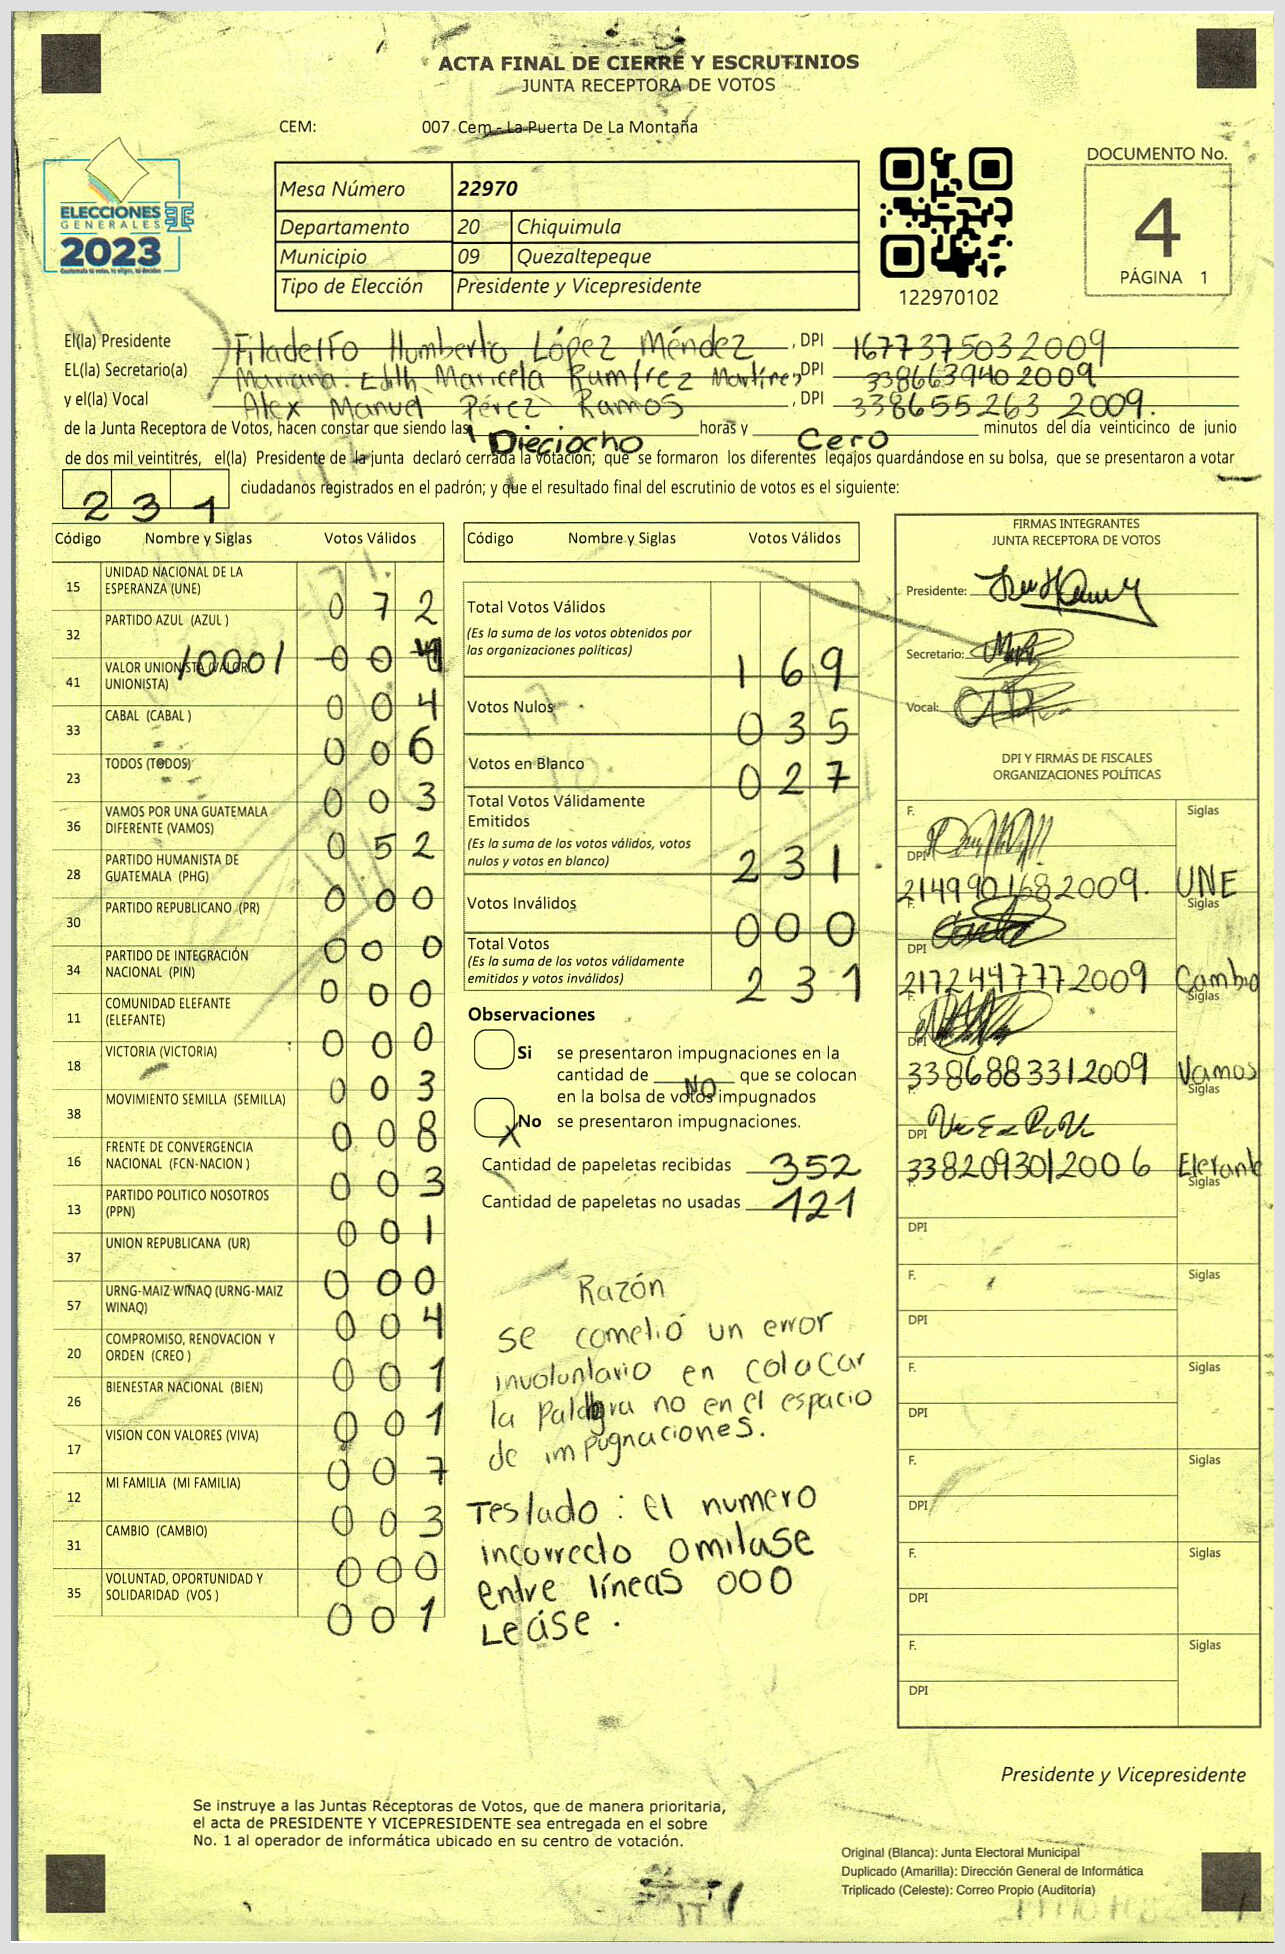 ACTA FINAL DE CIERRE Y ESCRUTINIOS
JUNTA RECEPTORA DE VOTOS
CEM: 007 Cem - La Puerta De La Montaña
ELECCIONES
GENERALES
2023
Guatemala tú votas, tú eliges, tú decides
Mesa Número 22970
Departamento 20 Chiquimula
Municipio 09 Quezaltepeque
Tipo de Elección Presidente y Vicepresidente
122970102
DOCUMENTO No.
4
PÁGINA 1
El(la) Presidente Filadelfo Humberto López Méndez, DPI 1677375032009
EL(la) Secretario(a) Mariana Edith Maricela Ramírez Martínez, DPI 338663940 2009
y el(la) Vocal Alex Manuel Pérez Ramos, DPI 338655263 2009.
de la Junta Receptora de Votos, hacen constar que siendo las Dieciocho horas y Cero minutos del día veinticinco de junio
de dos mil veintitrés, el(la) Presidente de la junta declaró cerrada la votación; que se formaron los diferentes legajos guardándose en su bolsa, que se presentaron a votar
231 ciudadanos registrados en el padrón; y que el resultado final del escrutinio de votos es el siguiente:
Código Nombre y Siglas Votos Válidos
15 UNIDAD NACIONAL DE LA ESPERANZA (UNE) 072
32 PARTIDO AZUL (AZUL ) /000/ 00
41 VALOR UNIONISTA (VALOR UNIONISTA) 004
33 CABAL (CABAL ) 006
23 TODOS (TODOS) 003
36 VAMOS POR UNA GUATEMALA DIFERENTE (VAMOS) 052
28 PARTIDO HUMANISTA DE GUATEMALA (PHG) 000
30 PARTIDO REPUBLICANO (PR) 000
34 PARTIDO DE INTEGRACIÓN NACIONAL (PIN) 000
11 COMUNIDAD ELEFANTE (ELEFANTE) 000
18 VICTORIA (VICTORIA) 003
38 MOVIMIENTO SEMILLA (SEMILLA) 008
16 FRENTE DE CONVERGENCIA NACIONAL (FCN-NACION ) 003
13 PARTIDO POLITICO NOSOTROS (PPN) 001
37 UNION REPUBLICANA (UR) 000
57 URNG-MAIZ WINAQ (URNG-MAIZ WINAQ) 004
20 COMPROMISO, RENOVACION Y ORDEN (CREO ) 001
26 BIENESTAR NACIONAL (BIEN) 001
17 VISION CON VALORES (VIVA) 007
12 MI FAMILIA (MI FAMILIA) 003
31 CAMBIO (CAMBIO) 000
35 VOLUNTAD, OPORTUNIDAD Y SOLIDARIDAD (VOS ) 001
Código Nombre y Siglas Votos Válidos
Total Votos Válidos
(Es la suma de los votos obtenidos por
las organizaciones politicas) 169
Votos Nulos 035
Votos en Blanco 027
Total Votos Válidamente
Emitidos
(Es la suma de los votos válidos, votos
nulos y votos en blanco) 231
Votos Inválidos 000
Total Votos
(Es la suma de los votos válidamente
emitidos y votos inválidos) 231
Observaciones
Si se presentaron impugnaciones en la
cantidad de NO que se colocan
en la bolsa de votos impugnados
X No se presentaron impugnaciones.
Cantidad de papeletas recibidas 352
Cantidad de papeletas no usadas 121
Razón
se cometió un error
involuntario en colocar
la palabra no en el espacio
de impugnaciones.
Testado: el numero
incorrecto omitase
entre líneas 000
Leáse.
FIRMAS INTEGRANTES
JUNTA RECEPTORA DE VOTOS
Presidente:
Secretario:
Vocal:
DPI Y FIRMAS DE FISCALES
ORGANIZACIONES POLÍTICAS
F. Siglas
DPI 2149901682009. UNE
F. Siglas
DPI 2172447772009 Cambio
F. Siglas
DPI 3386883312009 Vamos
F. Siglas
DPI 3382093012006 Elefante
F. Siglas
DPI
F. Siglas
DPI
F. Siglas
DPI
F. Siglas
DPI
F. Siglas
DPI
F. Siglas
DPI
Presidente y Vicepresidente
Se instruye a las Juntas Receptoras de Votos, que de manera prioritaria,
el acta de PRESIDENTE Y VICEPRESIDENTE sea entregada en el sobre
No. 1 al operador de informática ubicado en su centro de votación.
Original (Blanca): Junta Electoral Municipal
Duplicado (Amarilla): Dirección General de Informática
Triplicado (Celeste): Correo Propio (Auditoría)